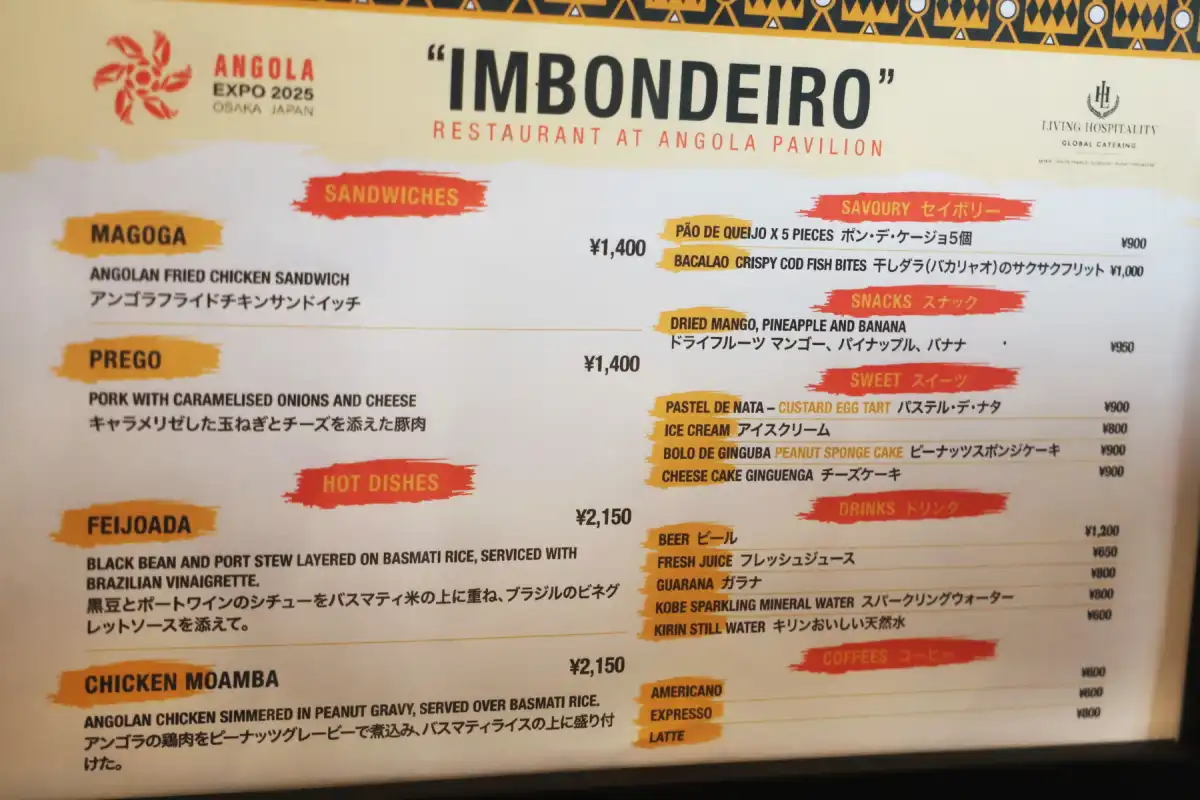 ANGOLA
EXPO 2025
OSAKA JAPAN
“IMBONDEIRO”
RESTAURANT AT ANGOLA PAVILION
LIVING HOSPITALITY
GLOBAL CATERING
SANDWICHES
MAGOGA
¥1,400
ANGOLAN FRIED CHICKEN SANDWICH
アンゴラフライドチキンサンドイッチ
PREGO
¥1,400
PORK WITH CARAMELISED ONIONS AND CHEESE
キャラメリゼした玉ねぎとチーズを添えた豚肉
HOT DISHES
FEIJOADA
¥2,150
BLACK BEAN AND PORT STEW LAYERED ON BASMATI RICE, SERVICED WITH
BRAZILIAN VINAIGRETTE.
黒豆とポートワインのシチューをバスマティ米の上に重ね、ブラジルのビネグ
レットソースを添えて。
CHICKEN MOAMBA
¥2,150
ANGOLAN CHICKEN SIMMERED IN PEANUT GRAVY, SERVED OVER BASMATI RICE.
アンゴラの鶏肉をピーナッツグレービーで煮込み、バスマティライスの上に盛り付
けた。
SAVOURY セイボリー
PÃO DE QUEIJO X 5 PIECES ポン・デ・ケージョ5個 ¥900
BACALAO CRISPY COD FISH BITES 干しダラ(バカリャオ)のサクサクフリット ¥1,000
SNACKS スナック
DRIED MANGO, PINEAPPLE AND BANANA
ドライフルーツ マンゴー、パイナップル、バナナ ¥950
SWEET スイーツ
PASTEL DE NATA – CUSTARD EGG TART パステル・デ・ナタ ¥900
ICE CREAM アイスクリーム ¥800
BOLO DE GINGUBA PEANUT SPONGE CAKE ピーナッツスポンジケーキ ¥900
CHEESE CAKE GINGUENGA チーズケーキ ¥900
DRINKS ドリンク
BEER ビール ¥1,200
FRESH JUICE フレッシュジュース ¥650
GUARANA ガラナ ¥800
KOBE SPARKLING MINERAL WATER スパークリングウォーター ¥800
KIRIN STILL WATER キリンおいしい天然水 ¥600
COFFEES コーヒー
AMERICANO ¥600
EXPRESSO ¥600
LATTE ¥800